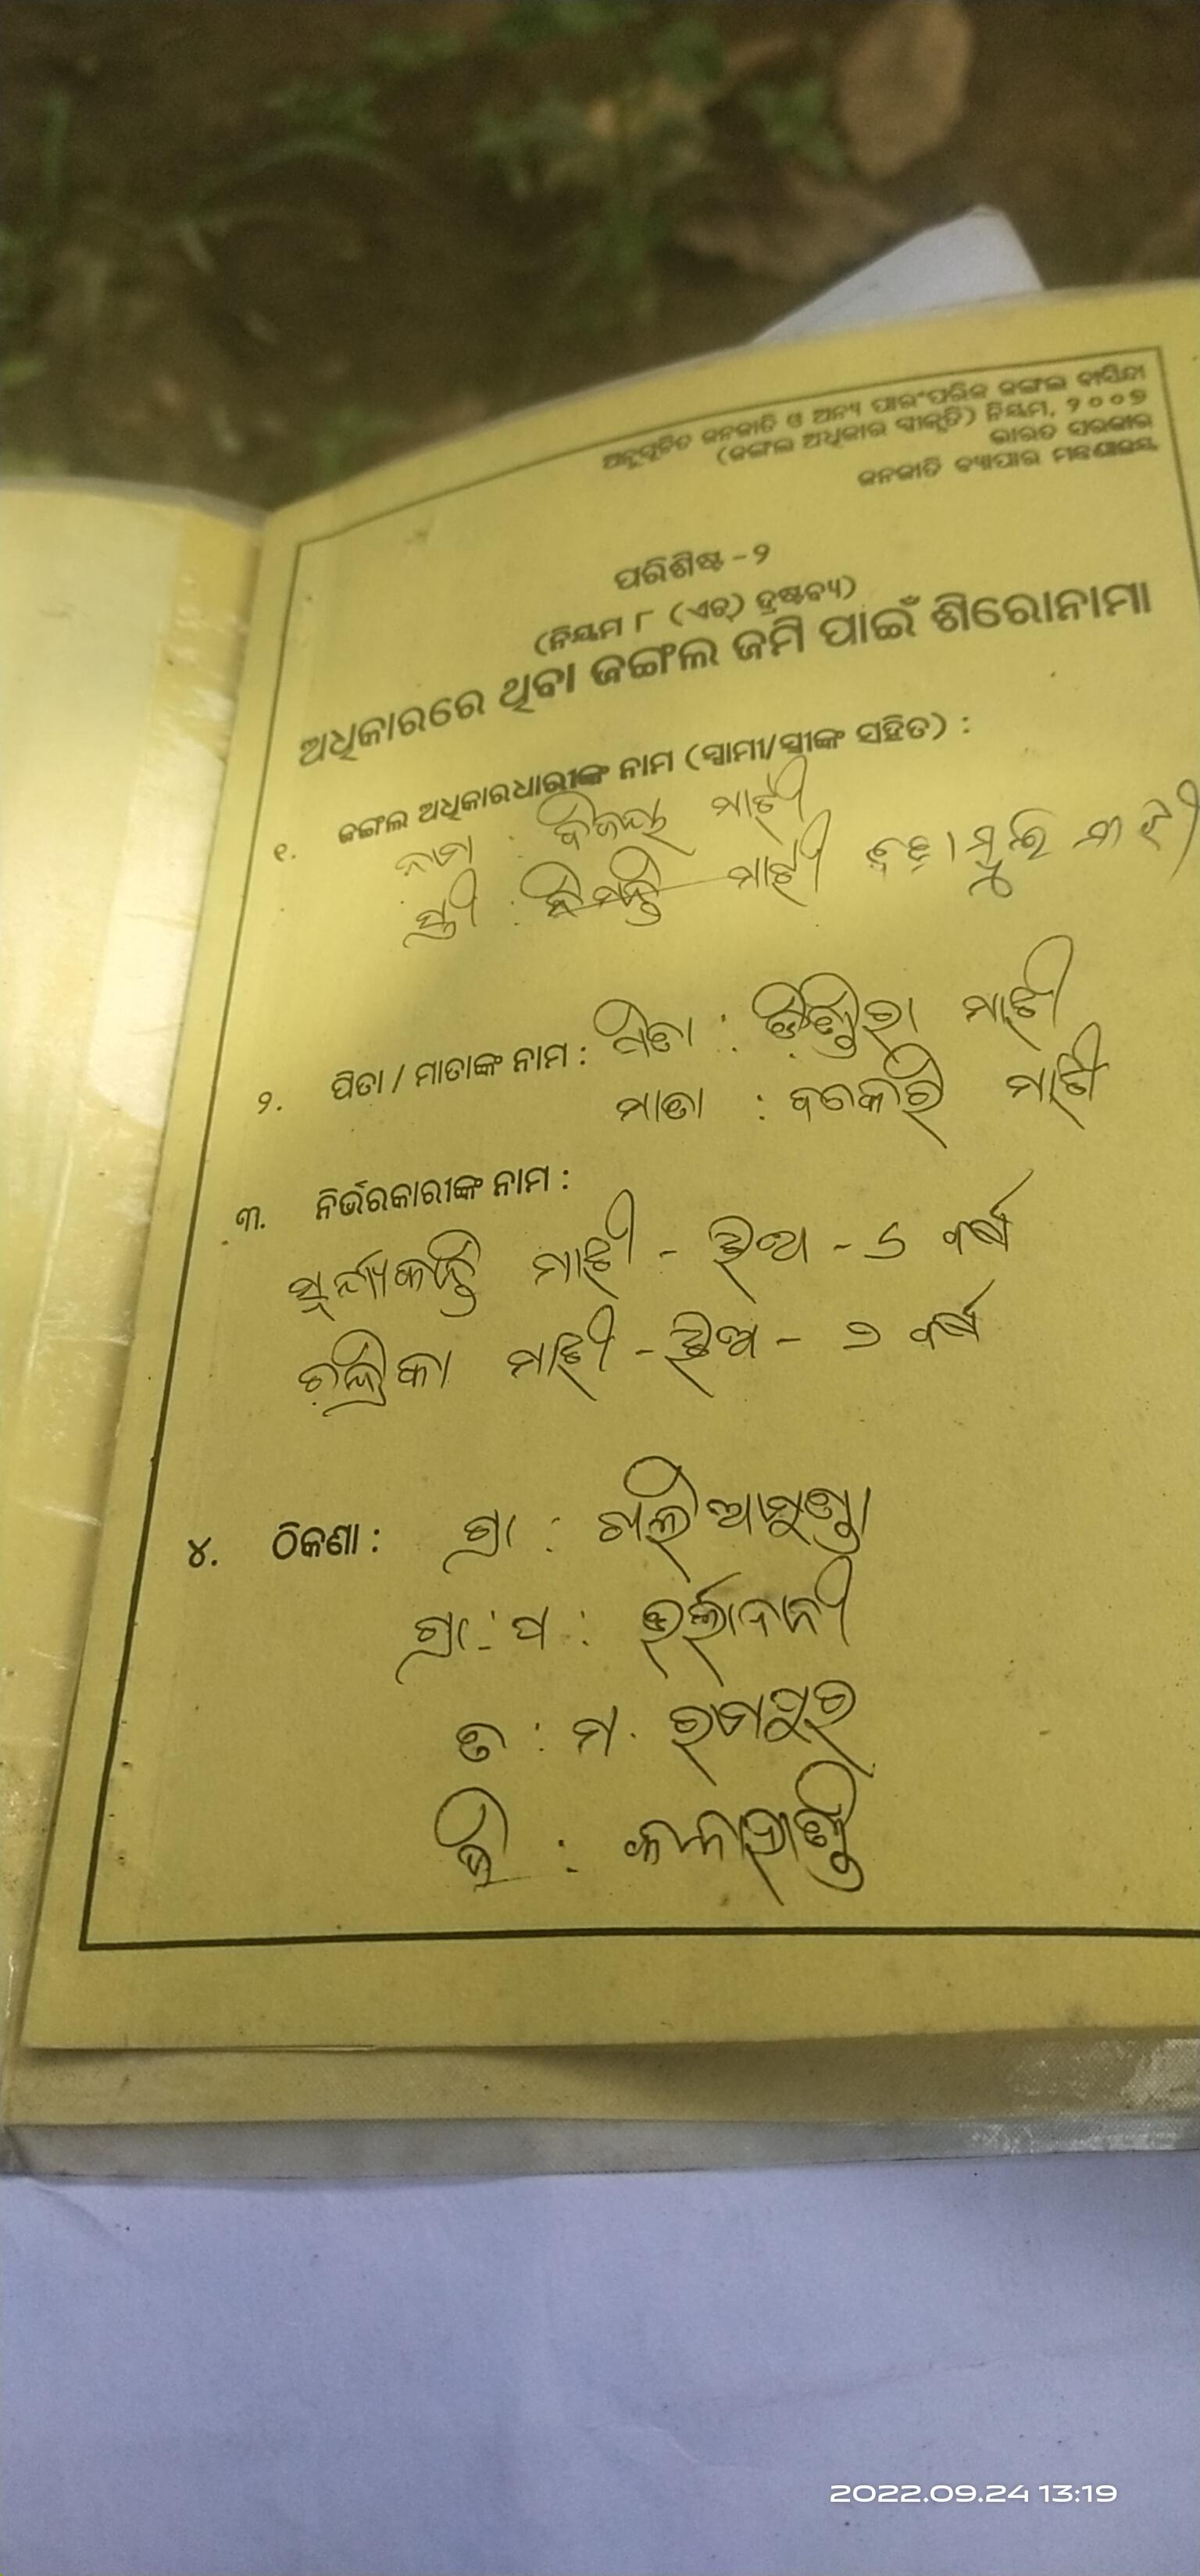 ଅନୁସୂଚିତ ଜନଜାତି ଓ ଅନ୍ୟ ପାରଂପରିକ ଜଙ୍ଗଲ ବାସିନ୍ଦା
(ଜଙ୍ଗଲ ଅଧିକାର ସ୍ୱୀକୃତି) ନିୟମ, ୨୦୦୭
ଭାରତ ସରକାର
ଜନଜାତି ବ୍ୟାପାର ମନ୍ତ୍ରଣାଳୟ
ପରିଶିଷ୍ଟ - ୨
(ନିୟମ ୮ (ଏଚ୍) ଦ୍ରଷ୍ଟବ୍ୟ)
ଅଧିକାରରେ ଥିବା ଜଙ୍ଗଲ ଜମି ପାଇଁ ଶିରୋନାମା
୧. ଜଙ୍ଗଲ ଅଧିକାରଧାରୀଙ୍କ ନାମ (ସ୍ୱାମୀ/ସ୍ତ୍ରୀଙ୍କ ସହିତ) :
ନାମ : ବିଜୟ ମାଝୀ
ସ୍ତ୍ରୀ : ମାଝୀ
୨. ପିତା / ମାତାଙ୍କ ନାମ : ପିତା : ମାଝୀ
ମାତା : ମାଝୀ
୩. ନିର୍ଭରକାରୀଙ୍କ ନାମ :
ସୂର୍ଯ୍ୟକାନ୍ତି ମାଝୀ - ଝିଅ - ୬ ବର୍ଷ
ଚନ୍ଦ୍ରିକା ମାଝୀ - ଝିଅ - ୨ ବର୍ଷ
୪. ଠିକଣା : ଗ୍ରା :
ଗ୍ରା : ପ :
ତ : ମ. ରାମପୁର
ଜି : କଳାହାଣ୍ଡି
2022.09.24 13:19